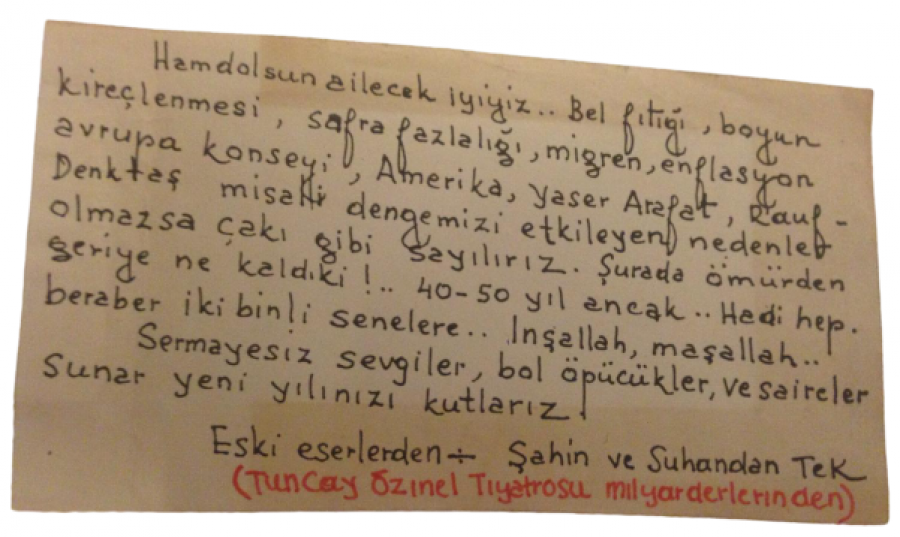 Hamdolsun ailecek iyiyiz.. Bel fıtığı, boyun
kireçlenmesi, safra fazlalığı, migren, enflasyon
avrupa konseyi, Amerika, Yaser Arafat, Rauf-
Denktaş misalli dengemizi etkileyen nedenler
olmazsa çakı gibi sayılırız. Şurada ömürden
geriye ne kaldıki!.. 40-50 yıl ancak.. Hadi hep.
beraber iki binli senelere.. Inşallah, maşallah..
Sermayesiz sevgiler, bol öpücükler, ve saireler
sunar yeni yılınızı kutlarız!
Eski eserlerden÷ Şahin ve Suhandan TEK
(Tuncay Özinel Tiyatrosu milyarderlerinden)